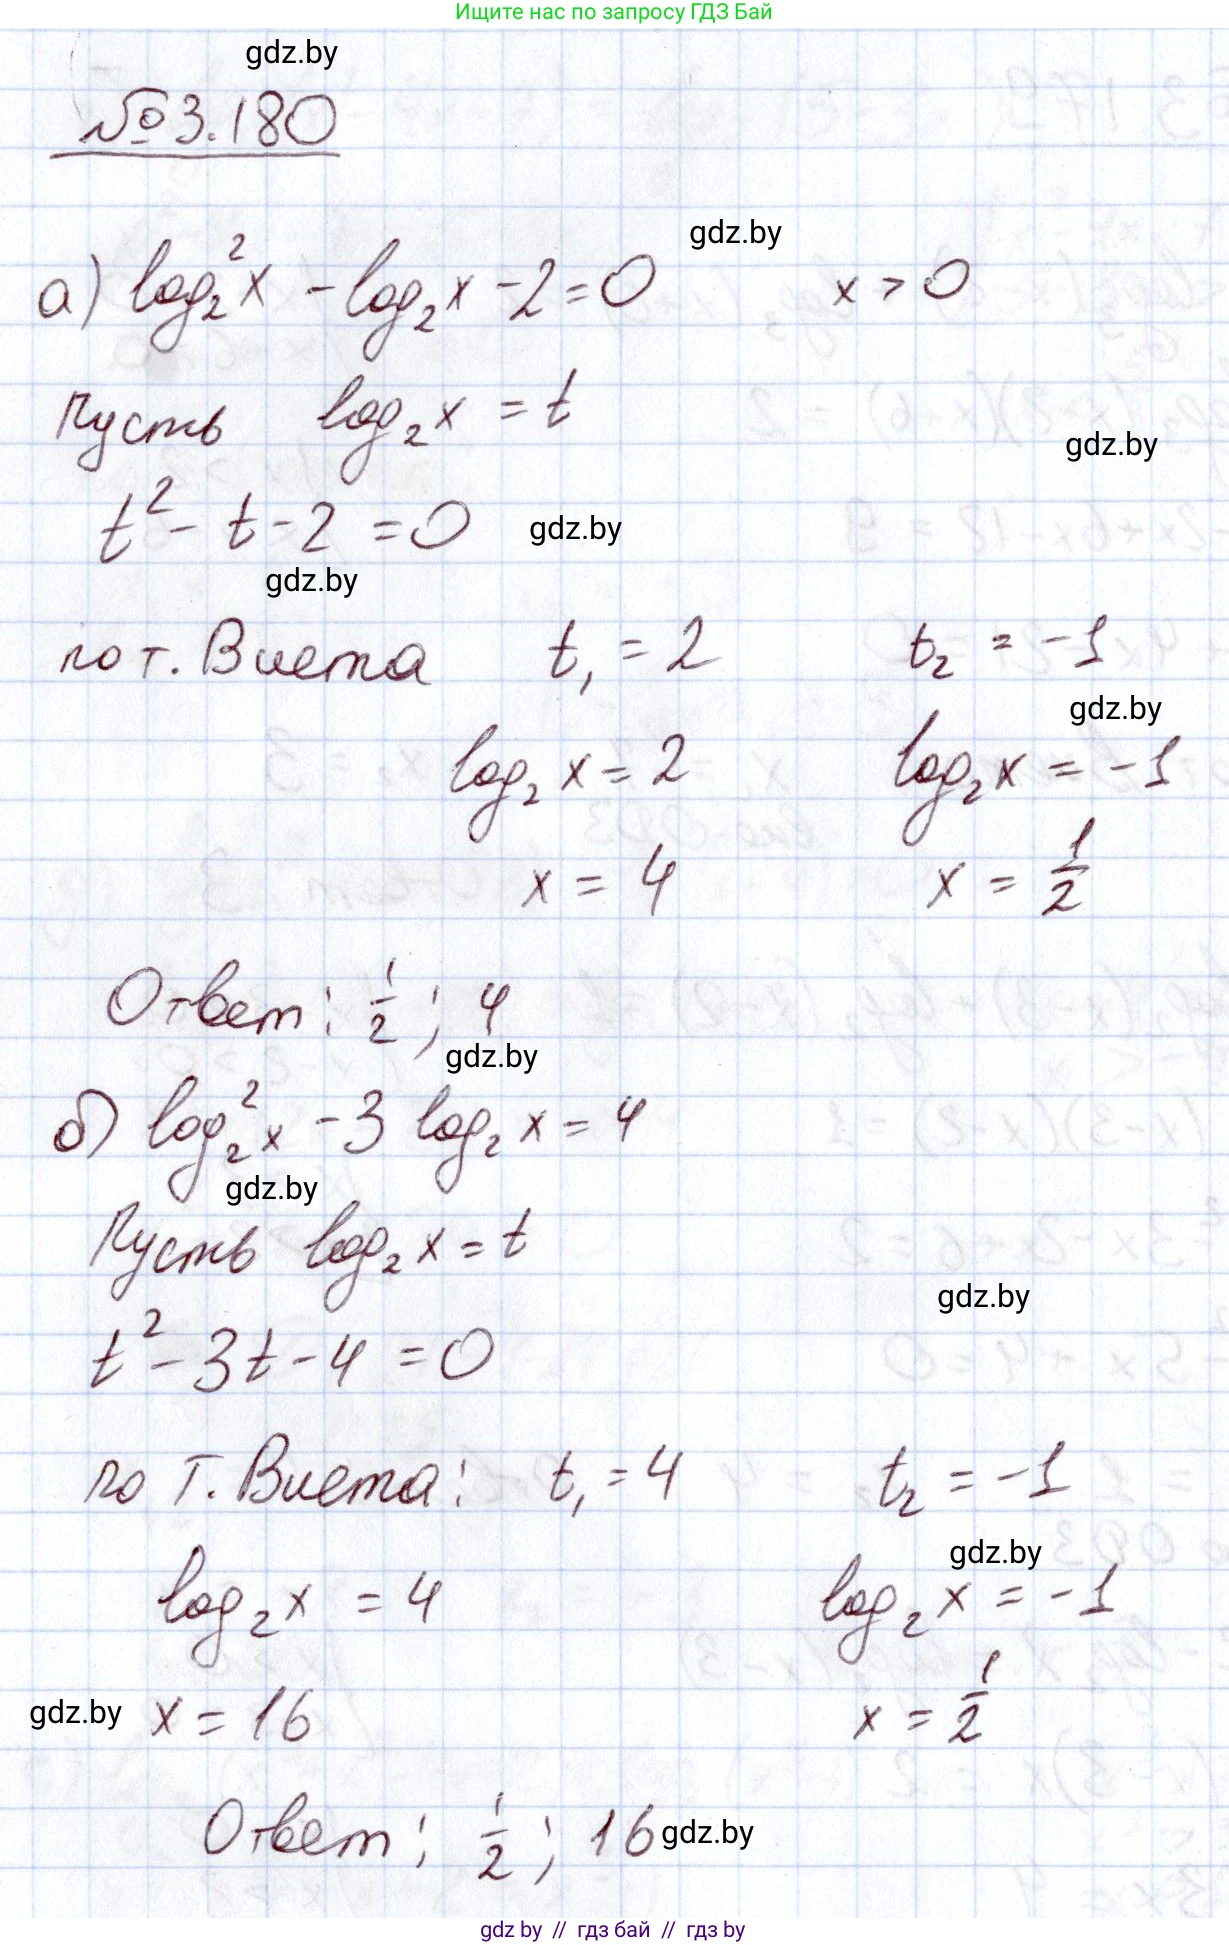 Ищите нас по запросу ГДЗ Бай
gdz.by
№3.180
gdz.by
а) log₂²x - log₂x - 2 = 0 x > 0
Пусть log₂x = t
gdz.by
t² - t - 2 = 0 gdz.by
gdz.by
по т. Виета t₁ = 2 t₂ = -1
gdz.by
log₂x = 2 log₂x = -1
x = 4 x = 1/2
Ответ: 1/2; 4
gdz.by
б) log₂²x - 3 log₂x = 4
gdz.by
Пусть log₂x = t
gdz.by
t² - 3t - 4 = 0
по т. Виета: t₁ = 4 t₂ = -1
gdz.by
log₂x = 4 log₂x = -1
gdz.by x = 16 x = 1/2
Ответ: 1/2; 16 gdz.by
gdz by // гдз бай // gdz by